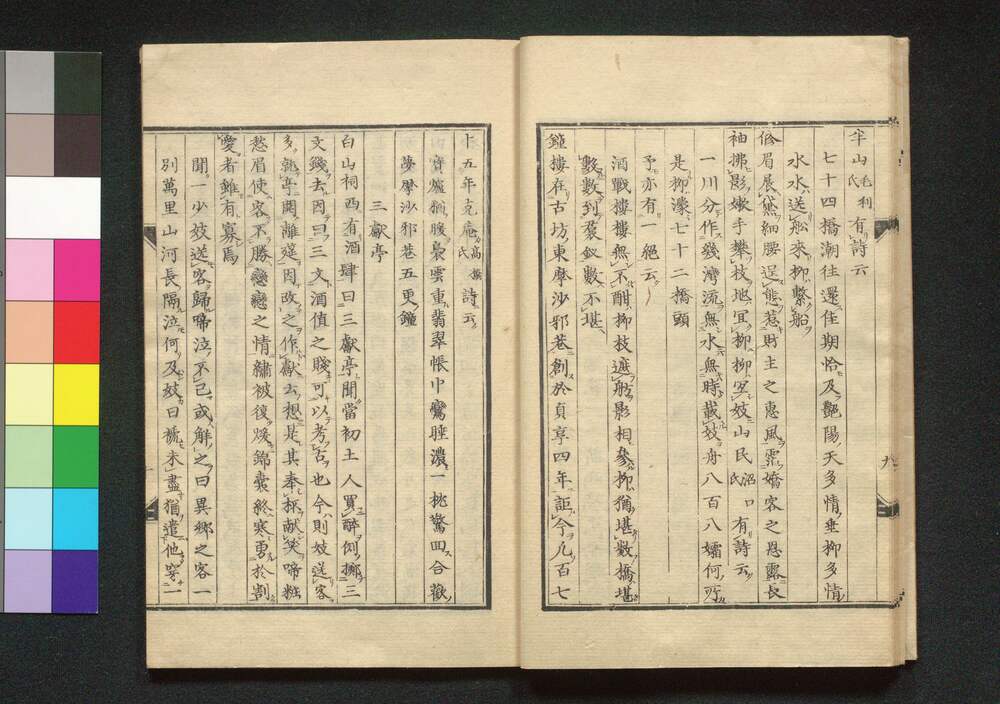 半山毛利氏有詩云
七十四橋潮往還佳期恰及艷陽天多情垂柳多情
水水送船來柳繫船
脩眉展黛細腰逞態惹財主之惠風霑嬌客之恩露長
袖拂影嫩手攀枝地宜柳柳宜妓山民沼口氏有詩云
一川分作幾灣流無水無時載妓舟八百八孀何所
是柳濠七十二橋頭
予亦有一絕云
酒戰樓樓無不酣柳枝遮船影相參柳猶堪數橋堪
數數到裙釵數不堪
鐘樓在古坊東摩沙邪巷創於貞享四年距今凡百七
十五年克庵高橋氏詩云
寶猶腹裊雲重翡翠帳中鸞睡濃一枕驚回合歡
夢摩沙邪巷五更鐘
三獻亭
白山祠西有酒肆曰三獻亭聞當初土人買醉倒擲三
文錢去因曰三文酒值之賤可以考古也今則妓送客
多就亭開離筵因改之作獻云想是其奉杯献笑啼粧
愁眉使客不勝戀戀之情繡被復煖錦囊終寒勇於割
愛者雖有寡焉
聞一少妓送客歸啼泣不已或解之曰異鄉之客一
別萬里山河長隔泣何及妓曰橃未盡猶遣他穿一
九